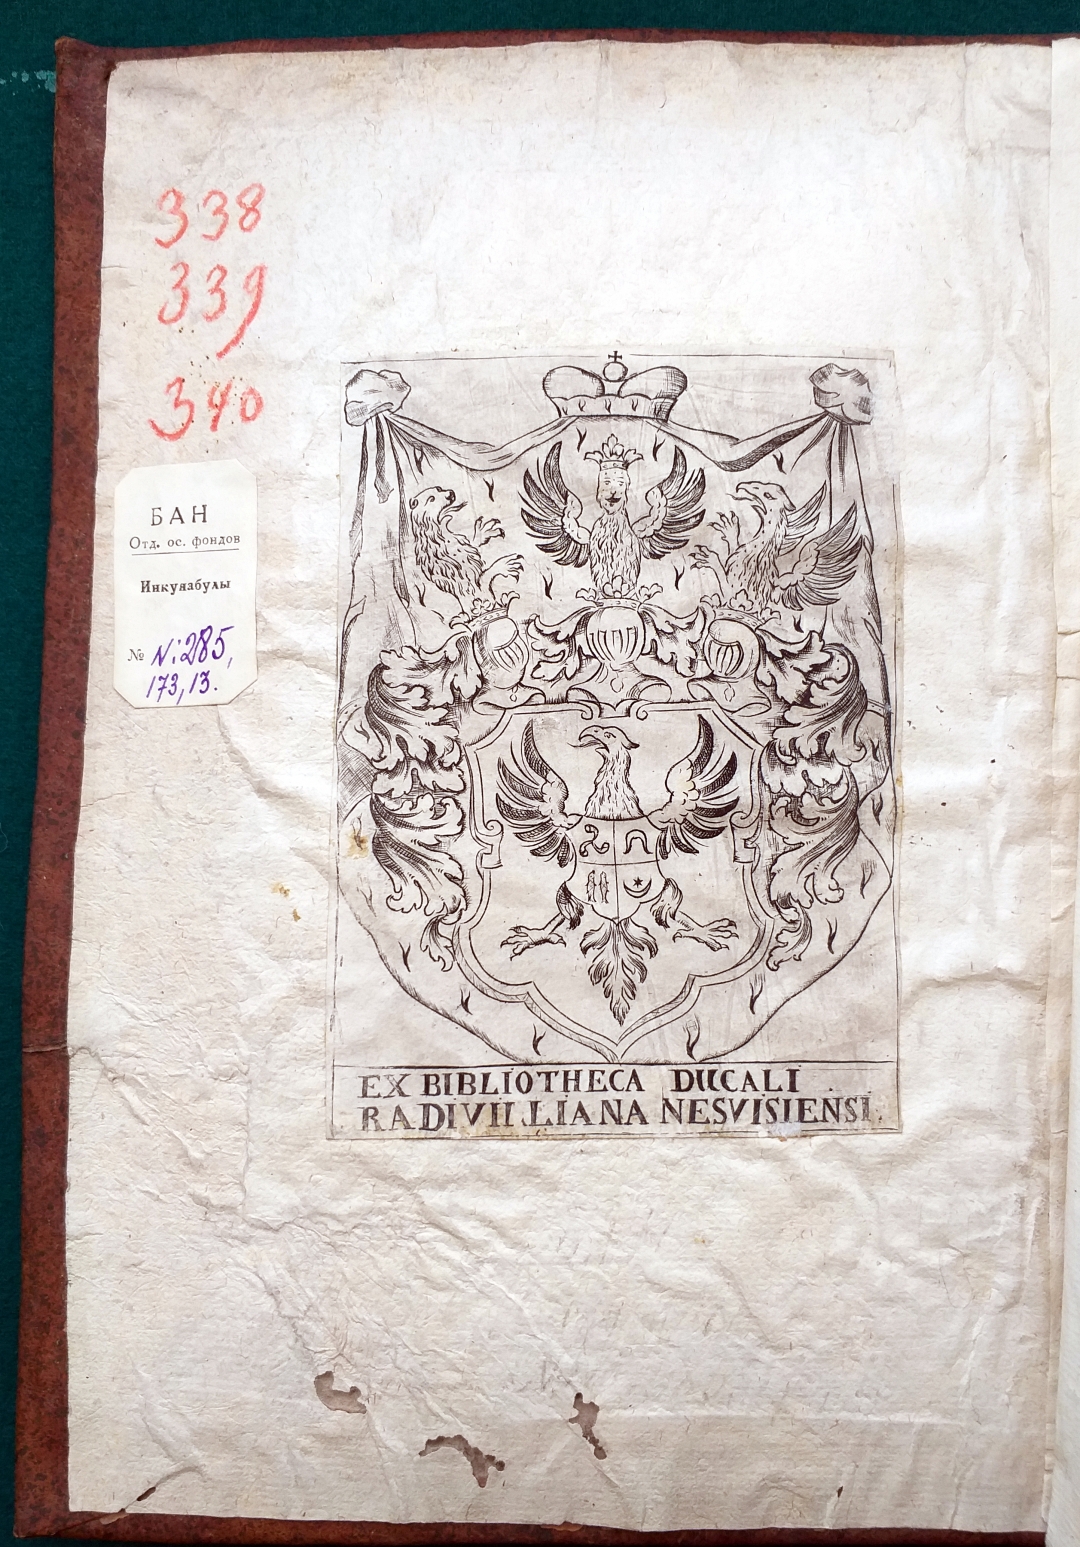 338
339
340
БАН
Отд. ос. фондов
Инкунабулы
№ N: 285,
173, 13.
EX BIBLIOTHECA DUCALI
RADIVILLIANA NESVISIENSI.